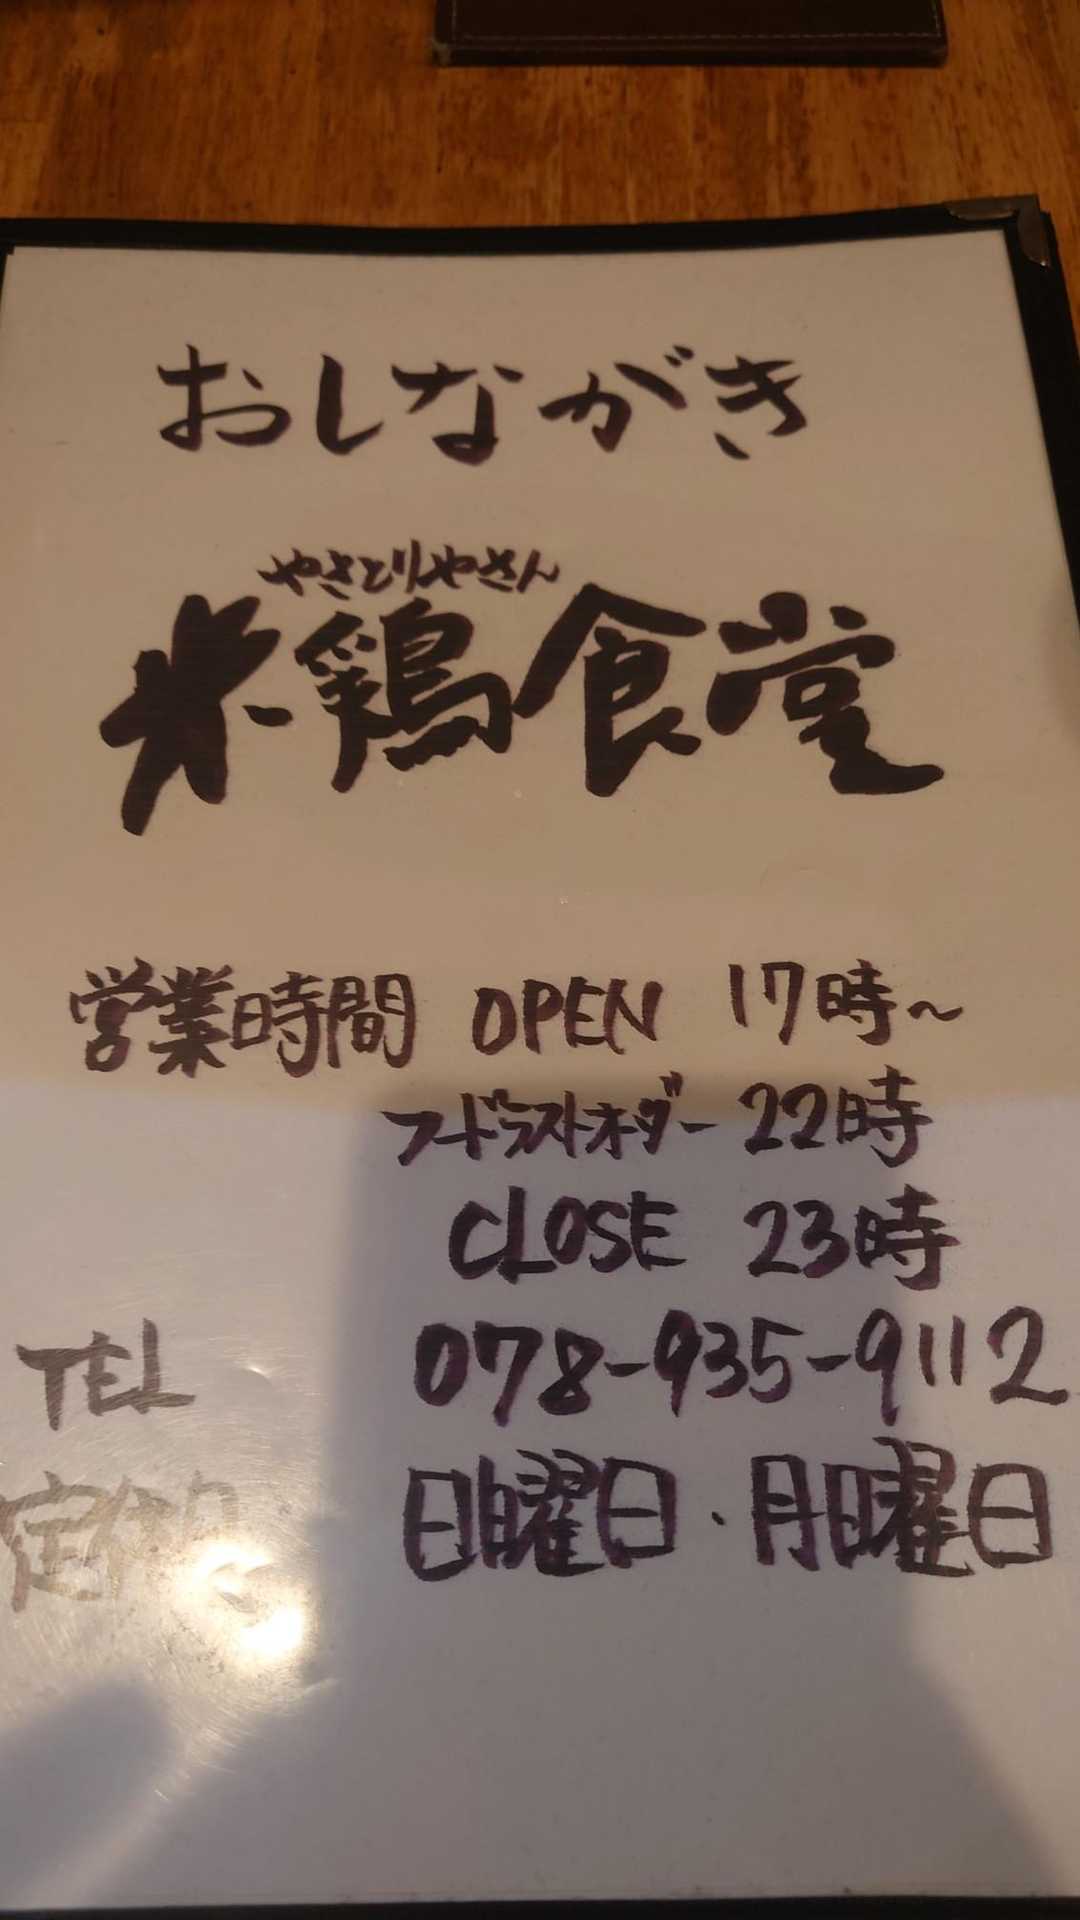 おしながき
やさとりやさん
米鶏食堂
営業時間 OPEN 17時〜
フードラストオーダー 22時
CLOSE 23時
TEL 078-935-9112
定休日 日曜日・月曜日